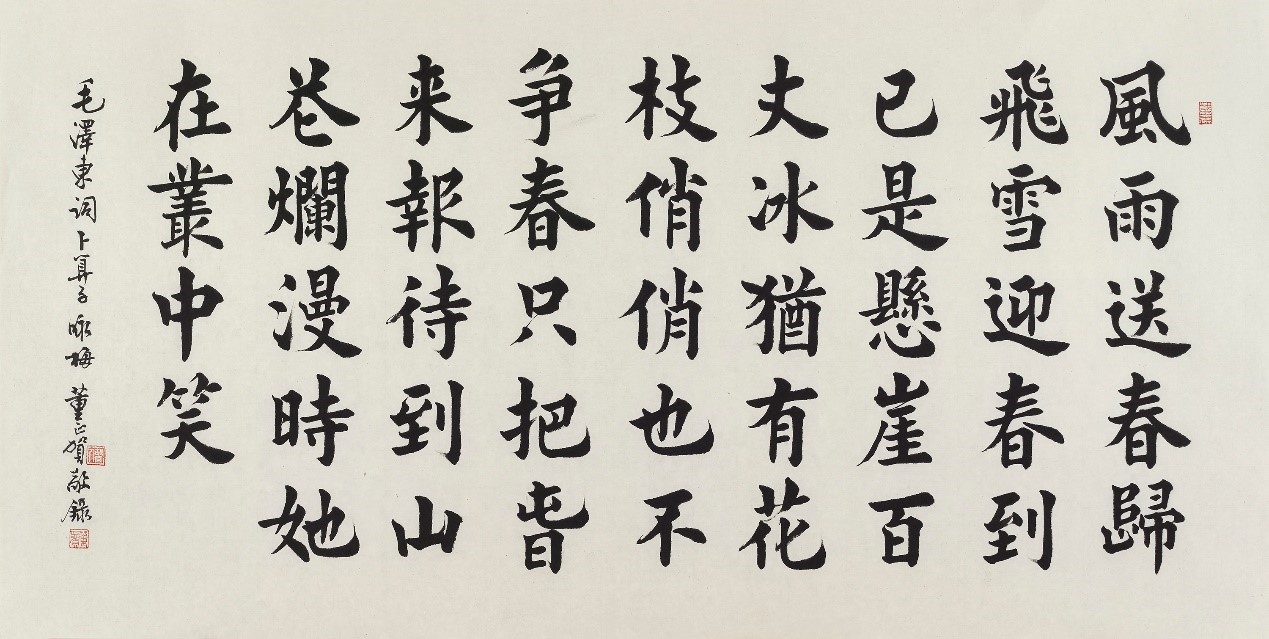 風雨送春歸
飛雪迎春到
已是懸崖百
丈冰猶有花
枝俏俏也不
争春只把旾
来報待到山
芲爛漫時她
在叢中笑
毛澤東詞卜算子咏梅 董正賀敬錄